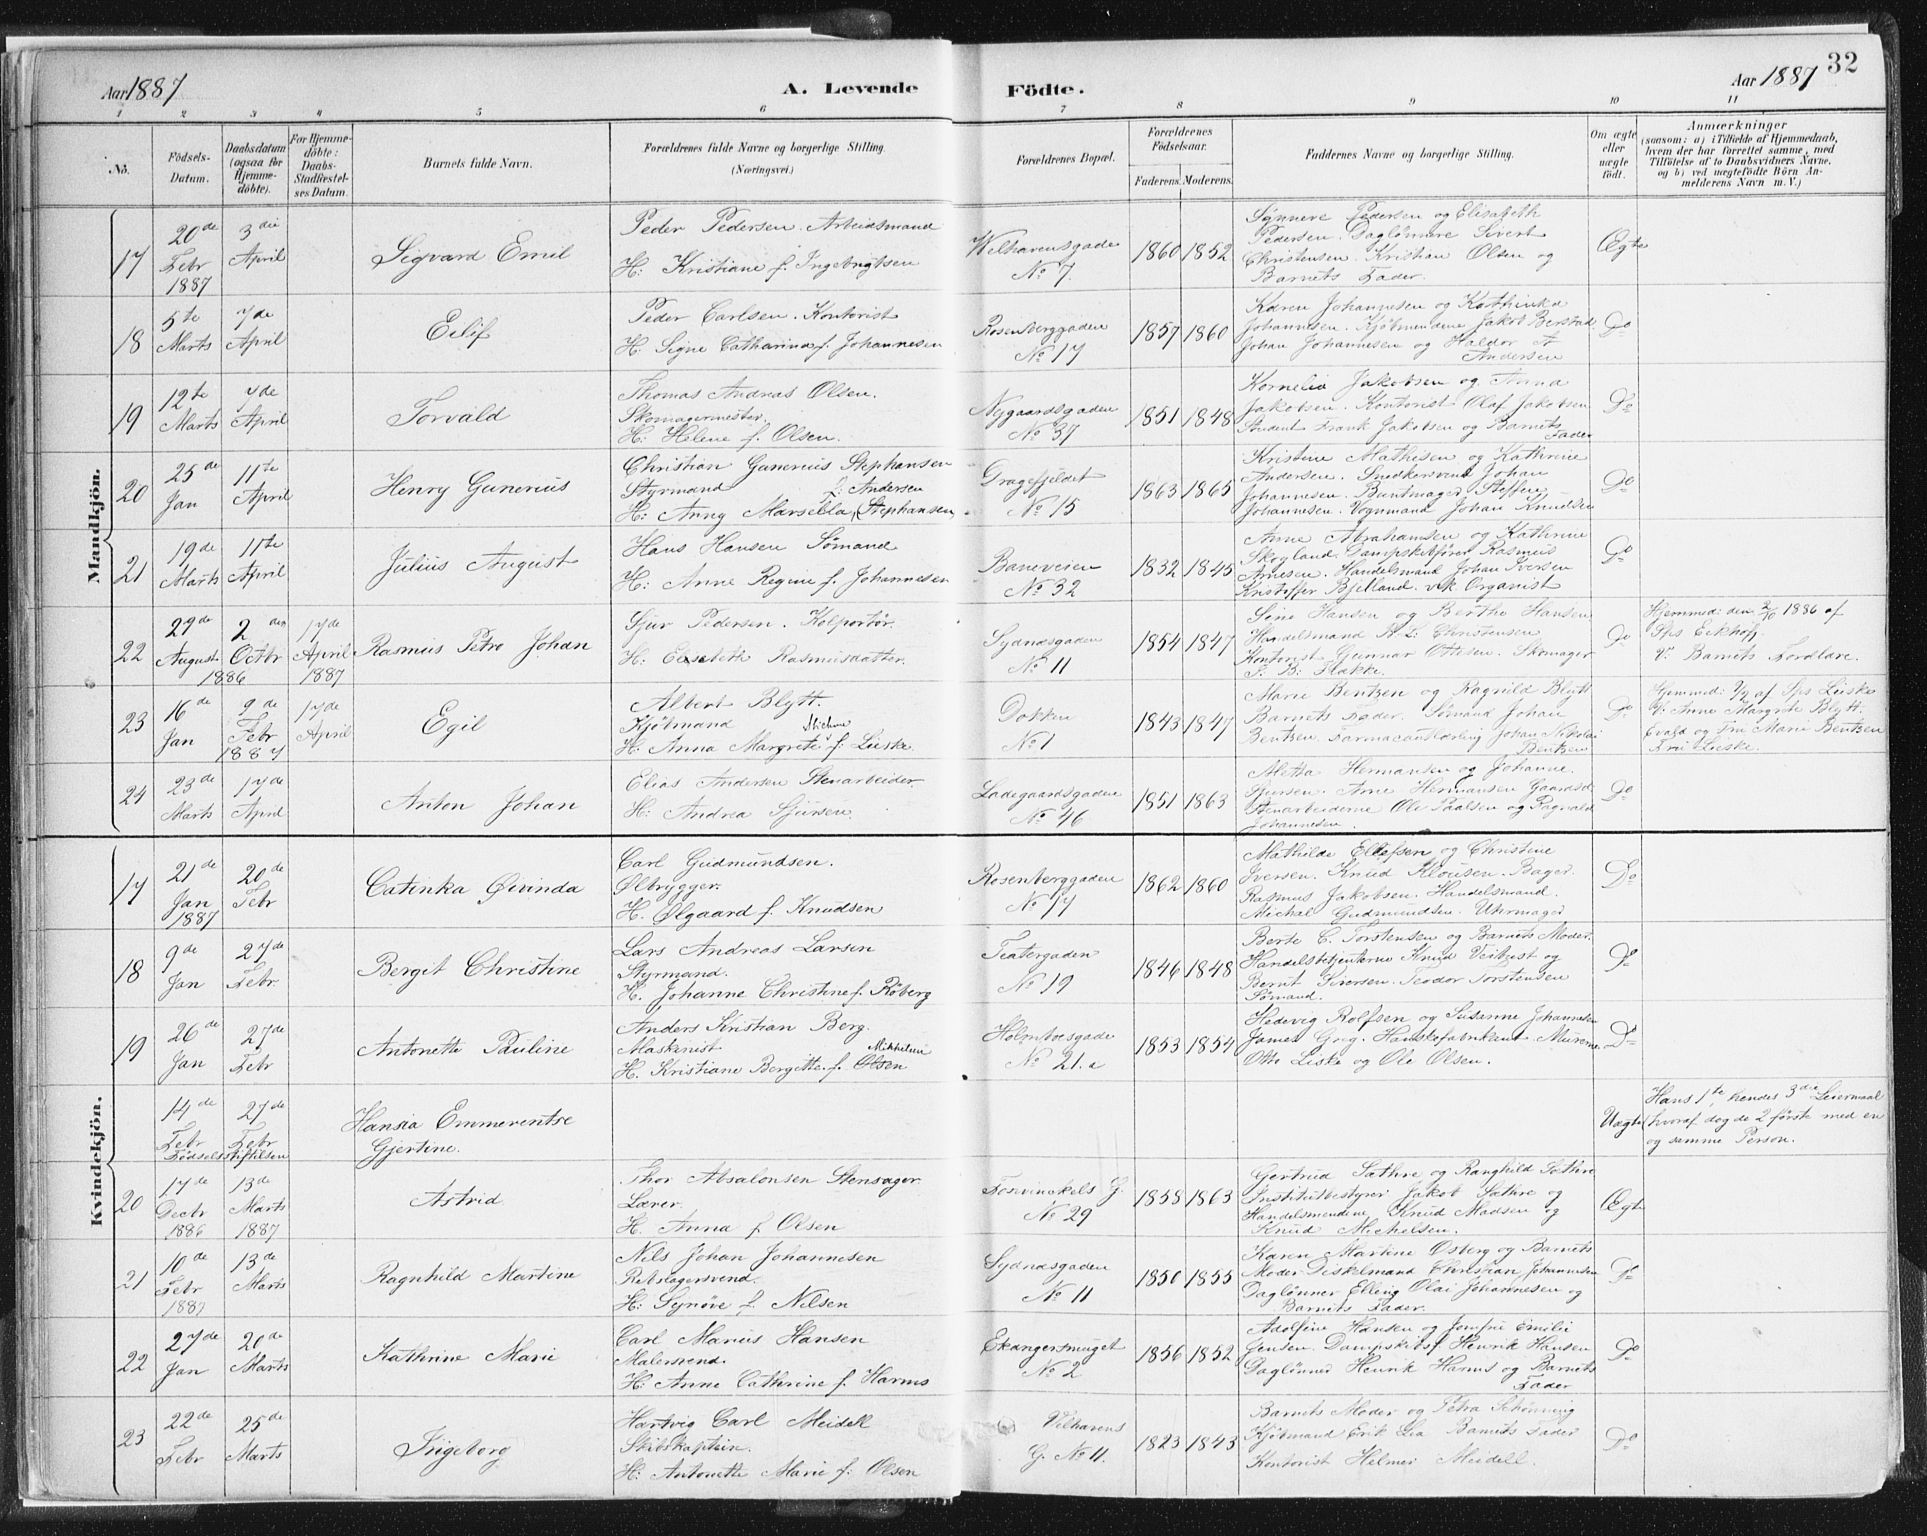 Aar 1887
A. Levende Födte.
Aar 1887
32
1 2 3 4 5 6 7 8 9 10 11
No.
Födsels-Datum.
Daabsdatum (ogsaa for Hjemme-döbte).
For Hjemme-döbte: Daabs-Stadfæstelses Datum.
Barnets fulde Navn.
Forældrenes fulde Navne og borgerlige Stilling. (Næringsvei.)
Forældrenes Bopæl.
Forældrenes Födselsaar.
Faderens. Moderens.
Faddernes Navne og borgerlige Stilling.
Om ægte eller uægte födt.
Anmærkninger
(saasom: a) i Tilfælde af Hjemmedaab, hvem der har forrettet samme, med Tilföielse af to Daabsvidners Navne, og b) ved uægtefödte Börn Anmelderens Navn m. V.)
Mandkjön.
17 20de Febr 1887 3die April Sigvard Emil
Peder Pedersen. Arbeidsmand
H: Kristiane f. Ingebrigtsen
Welhavensgade No 7. 1860 1852
Synneve Pedersen og Elisabeth
Pedersen. Daglønnere Sivert
Christensen. Kristian Olsen og
Barnets Fader.
Ægte
18 5te Marts 7de April Eilif
Peder Carlsen. Kontorist
H: Signe Catharina f. Johannesen
Rosenberggaden No 17 1857 1860
Karen Johannesen og Kathinka
Johannesen. Kjøbmændene Jakob Berstad
Johan Johannesen og Haldor A
Andersen
Do
19 12te Marts 7de April Torvald
Thomas Andreas Olsen.
Skomagermester.
H: Helene f. Olsen.
Nygaardsgaden No 37 1851 1848
Kornelia Jakobsen og Anna
Jakobsen. Kontorist Olaf Jakobsen
Student Frank Jakobsen og Barnets
Fader
Do
20 25de Jan 11te April Henry Gunerius
Christian Gunerius Stephansen
Styrmand f: Andersen
H: Anny Marsella (Stephansen)
Dragefjeldet No 15 1863 1865
Kristine Mathesen og Kathrine
Andersen. Snedkersvend Johan
Johannesen. Buntmager Steffen
Johannesen. Vognmand Johan Knudsen
Do
21 19de Marts 11te April Julius August
Hans Hansen Sømand
H: Anne Regine f. Johannesen
Baneveien No 32 1832 1845
Anne Abrahamsen og Kathrine
Skogland. Dampskibsfører Rasmus
Arnesen. Handelsmand Johan Iversen
Kristoffer Bjelland. vik. Organist
Do
22 29de August 1886 2den Octbr 17de April 1887 Rasmus Petro Johan
Sjur Pedersen. Kolportør.
H: Elisabeth Rasmusdatter.
Sydnæsgaden No 11 1854 1847
Sine Hansen og Berthe Hansen
Handelsmand H. L. Christensen
Kontorist Gunnar Ottesen. Skomager
P. B. Flakke.
Do
Hjemmed: den 2/10 1886 af
Sps Eckhoff.
V: Barnets Forældre.
23 16de Jan 9de Febr 1887 17de April Egil
Albert Blytt.
Kjøbmand
H: Anna Margrete f. Lieske.
Dokken No 1 1843 1847
Marie Bentzen og Ragnild Blytt
Barnets Fader. Sømand Johan
Bentzen. Farmaceutlærling Johan Nikolai
Bentzen
Do
Hjemmed: 9/2 af Sps Lieske
V: Anne Margrete Blytt.
Evald og Fru Marie Bentzen
Fru Lieske.
24 23de Marts 17de April Anton Johan
Elias Andersen Stenarbeider.
H: Andrea Sjursen.
Ladegaardsgaden No 46 1851 1863
Metta Hermansen og Johanne.
Sjursen. Arne Hermansen Gaardsd.
Stenarbeiderne Ole Paalsen og Ragnald
Johannesen.
Do
Kvindekjön.
17 21de Jan 1887 20de Febr Catinka Øivinda
Carl Gudmundsen.
Ølbrygger.
H. Ølgaard f. Knudsen
Rosenberggaden No 14 1862 1860
Mathilde Ellefsen og Christine
Iversen. Knud Klousen. Bager.
Rasmus Jakobsen. Handelsmand.
Michal Gudmundsen. Uhrmager
Do
18 9de Jan 27de Febr. Bergit Christine
Lars Andreas Larsen
Styrmand.
H. Johanne Christine f. Röberg
Teatergaden No 19 1846 1848
Berte C. Torstensen og Barnets Moder.
Handelsbetjenterne Knud Veikvist og
Bernt Siversen. Teodor Torstensen
Sømand.
Do
19 26de Jan 27de Febr Antonette Pauline
Anders Kristian Berg.
Maskinist
H. Kristiane Bergitte f. Olsen
Holmboesgade No 21.a 1853 1854
Hedevig Rolfsen og Susanne Johannesen
James Grig. Hanskefabrikant. Murerne
Otto Liske og Ole Olsen.
Do
14de Febr 27de Febr Fødselsstiftelsen
Hansia Emmerentse
Gjertine.
Uægte
Hans 1te, hendes 3die Leiermaal
hvoraf dog de 2 første med en
og samme Person.
20 17de Decbr 1886 13de Marts 1887 Astrid
Thor Absalonsen Stensager
Lærer.
H. Anna f. Olsen
Fosvinckels G. No 29 1858 1863
Gertrud Sathre og Ranghild Sathre
Institutbestyrer Jakob Sathre og
Handelsmændene Knud Madsen og
Knud Michelsen.
Ægte
21 10de Febr 1887 13de Marts Ragnhild Martine
Nils Johan Johannesen
Rebslagersvend.
H: Synöve f. Nilsen
Sydnæsgaden No 11 1850 1855
Karen Martine Osberg og Barnets
Moder. Diskelmand Christian Johannesen
Daglønner Elling Olai Johannesen og
Barnets Fader.
Do
22 27de Jan 20de Marts Kathrine Marie
Carl Marius Hansen
Malersvend.
H: Anne Cathrine f. Harms
Ekangersmuget No 2 1856 1852
Adolfine Hansen og Jomfru Emilie
Jensen. Dampskibsf. Henrik Hansen
Daglønner Henrik Harms og Barnets
Fader
Do
23 22de Febr 25de Marts Ingeborg
Hartvig Carl Meidell
Skibskaptein.
H: Antonette Marie f: Olsen
Vilhavens G. No 11. 1823 1843
Barnets Moder og Petra Schønning
Kjøbmand Erik Lea Barnets Fader
Kontorist Helmer Meidell.
Do